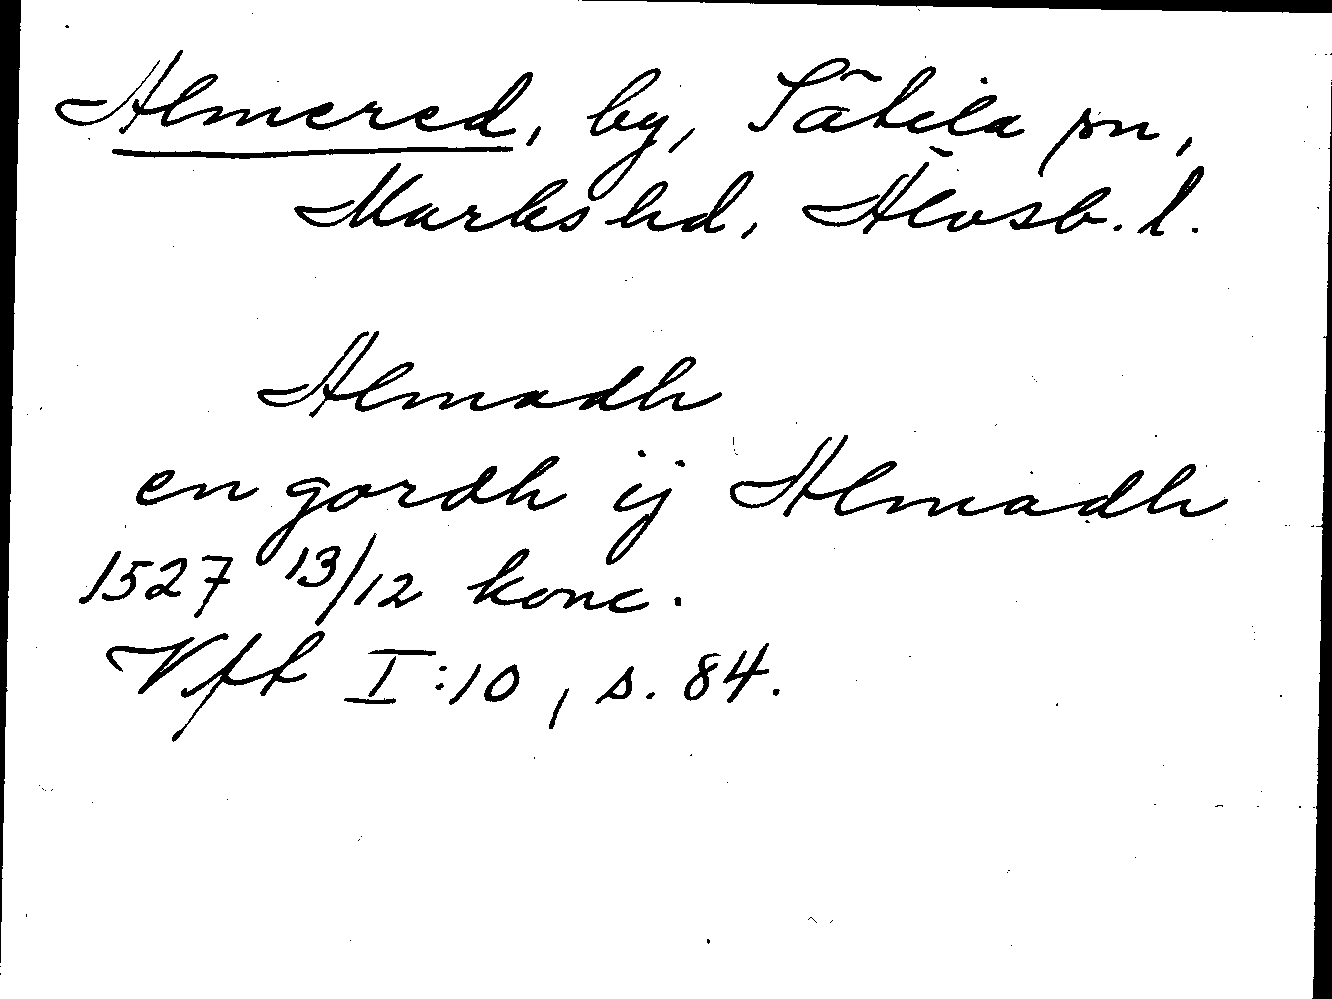 Almered, by, Sätila sn,
Marks hd, Älvsb. l.
Almadh
en gordh ij Almadh
1527 13/12 konc.
Vft I:10, s. 84.